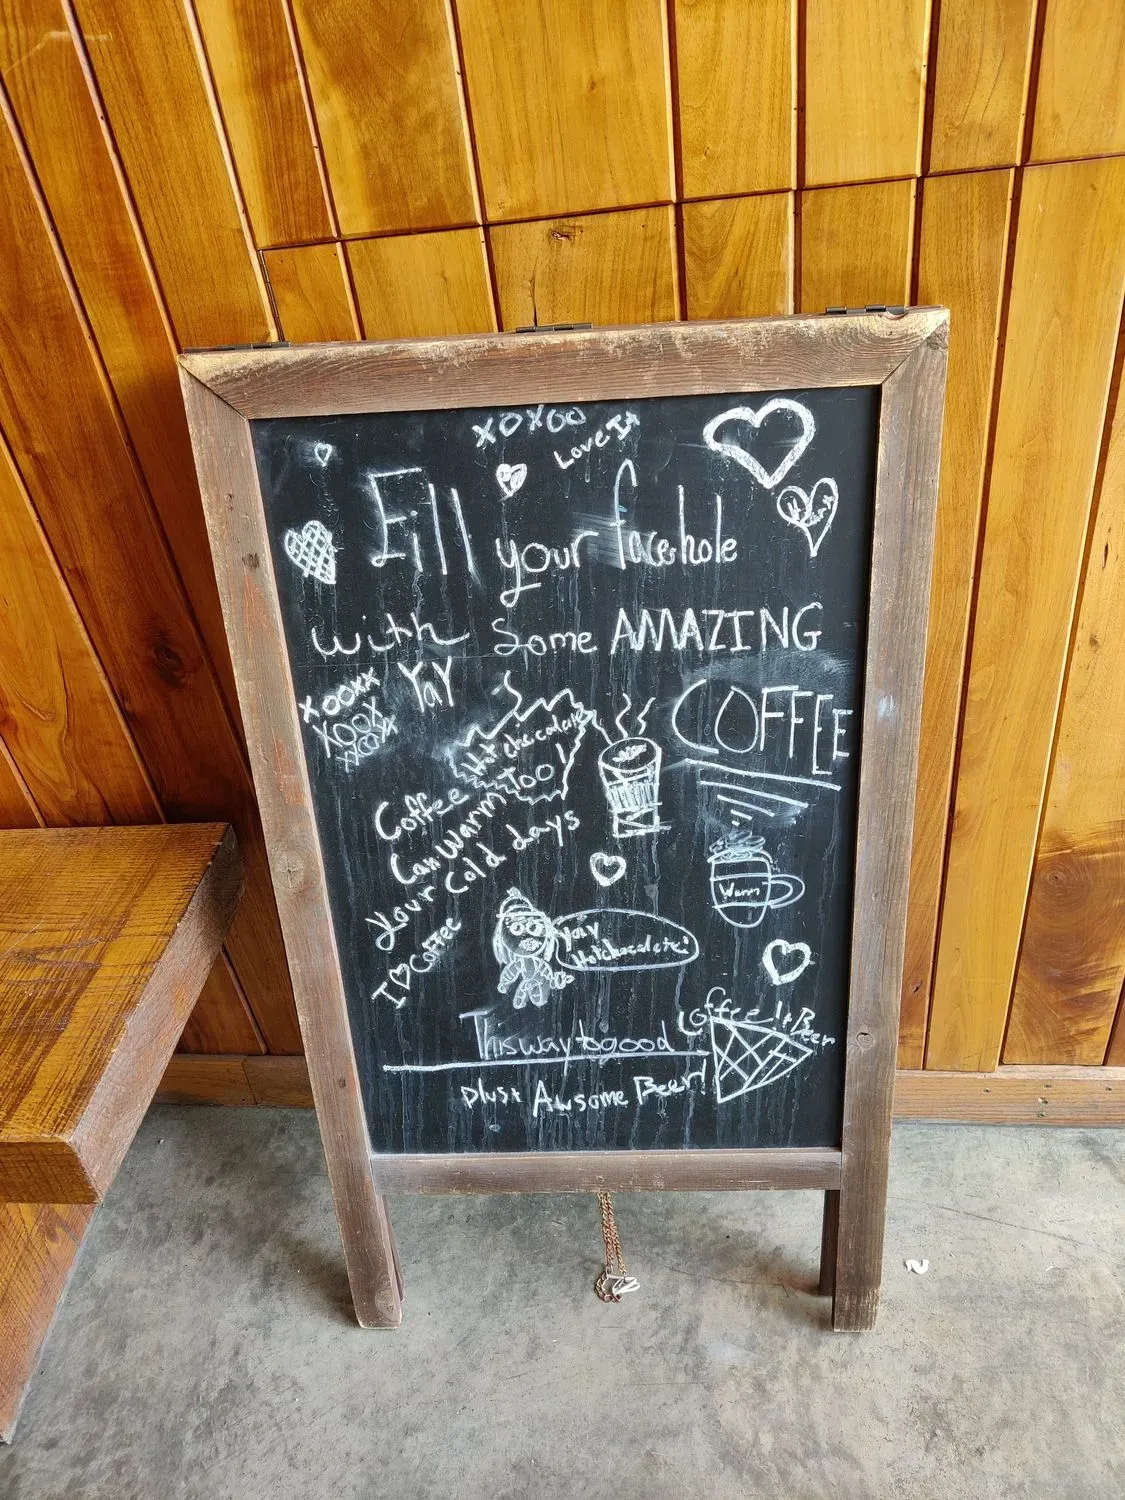 xoxoo
Love It
Fill your facehole
with some AMAZING
COFFEE
YaY
xooxx
xoox
xoox
Hot chocolate
too!
Coffee
Can Warm
your cold days
I ♡ Coffee
Warm
Yay
Hotchocolate!
This way to good
Coffee It Been
plus+ Awsome Beer!